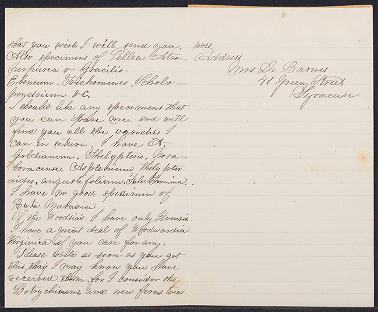 that you wish I will send you
Also specimens of Pellea Atro-
purpurea & Gracilis.
Ebeneum. Trichomanes, Scholo-
pendrium &c.
I should like any specimens that
you can spare me and will
send you all the varieties I
can in return. I have A.
Goldieanum, Thelypteris, Nova-
boracense, Asplenium thelypter-
oides, angustifolium,
I have no good specimen of
Ruta Muraria
Of the Woodsias I have only Ilvensis
I have a great deal of Woodwardia
Virginica if you care for any.
Please write as soon as you get
this, that I may know you have
received them, for I consider the
Botrychiums and new ferns
Address
Mrs Dr Barnes
Green Street
Syracuse